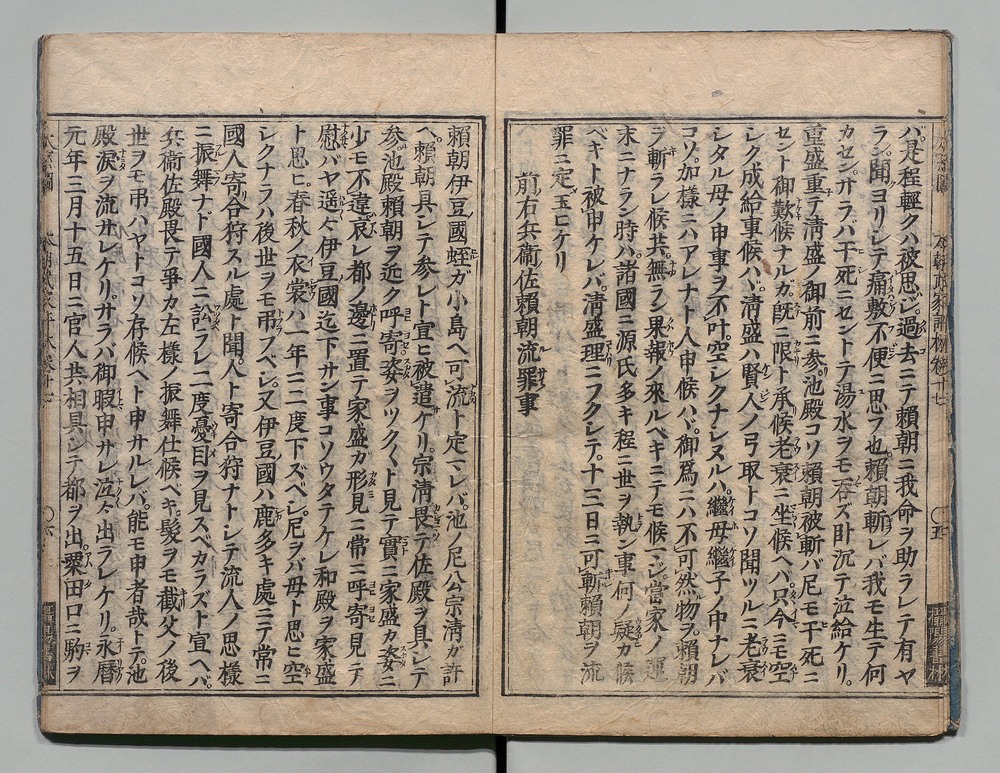 バ是程輕クハ被思ジ。過去ニテ頼朝ニ我命ヲ助ラレテ有ヤ
ラン。聞ヨリシテ痛敷不便ニ思フ也。頼朝斬レバ我モ生テ何
カセン。サラバ干死ニセントテ湯水ヲモ呑ズ計沉テ泣給ケリ。
重盛重テ淸盛ノ御前ニ参。池殿コソ頼朝被斬バ尼モ干死ニ
セント御歎候ナルカ。既ニ限ト承候老衰ニ坐候ヘバ。只今ニモ空
シク成給事候ハヾ。淸盛ハ賢人ノ弓取トコソ聞ツルニ老衰
シタル母ノ申事ヲ不叶。空シクナシヌルハ。繼母繼子ノ中ナレバ
コソ。加様ニハアレナト人申候ハヾ。御爲ニハ不可然物ヲ。頼朝
ヲ斬ラレ候共。無ラン果報ノ來ルベキニテモ候マジ。當家ノ運
末ニナラン時ハ。諸國ニ源氏多キ程ニ世ヲ執ン事何ノ疑カ候
ベキト被申ケレバ。淸盛理ニフクシテ。十三日ニ可斬頼朝ヲ流
罪ニ定玉ヒケリ
前右兵衛佐頼朝流罪事
頼朝伊豆國蛭ガ小島ヘ可流ト定マレバ。池ノ尼公宗淸ガ許
ヘ。頼朝具シテ参レト宣ヒ被遣ケリ。宗淸畏テ佐殿ヲ具シテ
参。池殿頼朝ヲ近ク呼寄姿ヲツクヾト見テ實ニ家盛カ姿ニ
少モ不違哀レ都ノ邊ニ置テ家盛ガ形見ニ常ニ呼寄見テ
慰バヤ遥々伊豆國迄下サン事コソウタテケレ和殿ヲ家盛
ト思ヒ。春秋ノ衣裳ハ一年ニ二度下ズベシ。尼ヲバ母ト思ヒ空
シクナラハ後世ヲモ弔フベシ。又伊豆國ハ鹿多キ處ニテ常ニ
國人寄合狩スル處ト聞。人ト寄合狩ナトシテ流人ノ思様
ニ振舞ナド國人ニ訟ラレ二度憂目ヲ見スベカラズト宣ヘバ。
兵衛佐殿畏テ爭カ左様ノ振舞仕候ベキ。髪ヲモ截父ノ後
世ヲモ弔ハヤトコソ存候ヘト申サルレバ。能モ申者哉トテ。池
殿涙ヲ流サレケリ。サラバ御暇申サレ泣々出ラレケリ。永暦
元年三月十五日ニ官人共相具シテ都ヲ出。粟田口ニ駒ヲ